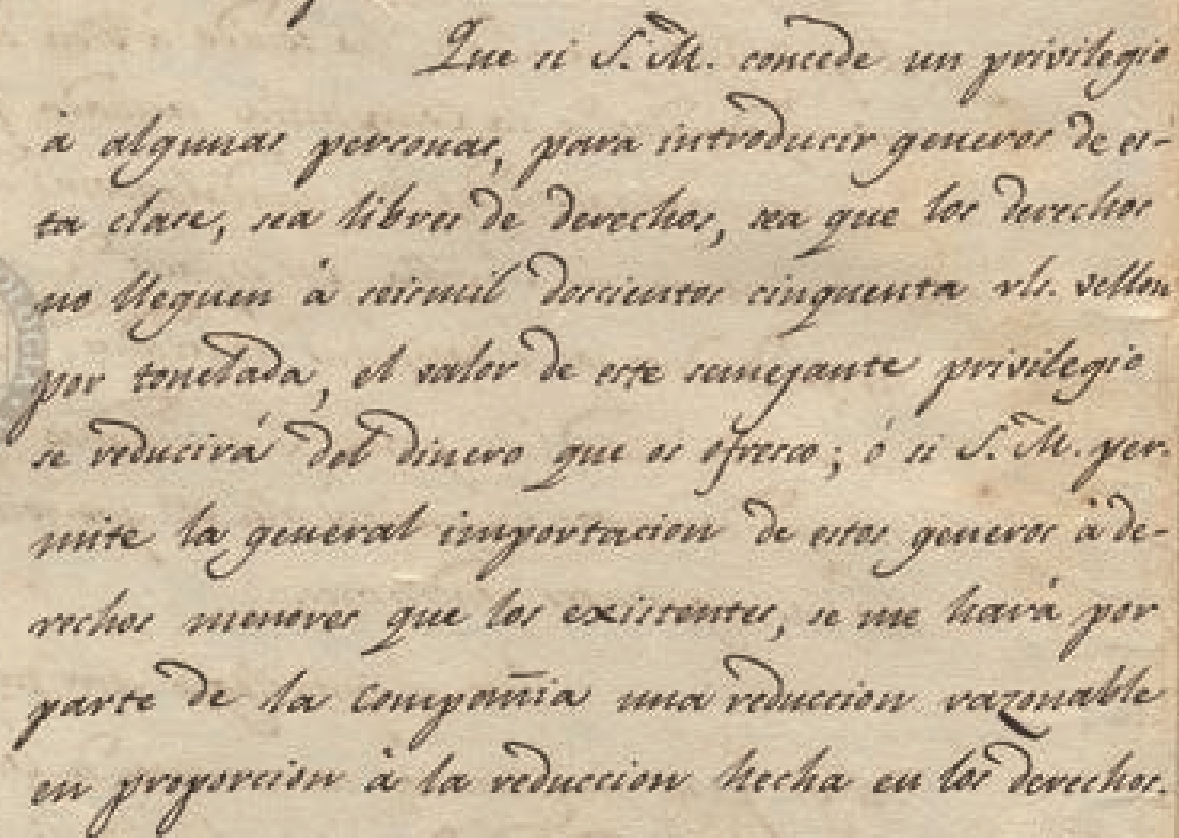 Que si S. M. concede un privilegio
à algunas personas, para introducir generos de es-
ta clase, sea libres de derechos, sea que los derechos
no lleguen à seismil doscientos cinquenta rls. vellon
por tonelada, el valor de este semejante privilegio
se reducirá del dinero que os ofresco; ó si S. M. per-
mite la general importacion de estos generos à de-
rechos menores que los existentes, se me hará por
parte de la Compañia una reduccion razonable
en proporcion à la reduccion hecha en los derechos.